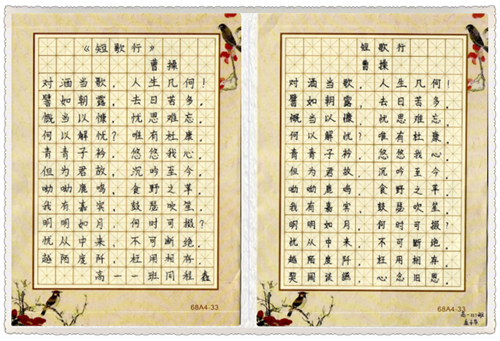 《短歌行》
曹操
对酒当歌，人生几何！
譬如朝露，去日苦多。
慨当以慷，忧思难忘。
何以解忧？唯有杜康。
青青子衿，悠悠我心。
但为君故，沉吟至今。
呦呦鹿鸣，食野之苹。
我有嘉宾，鼓瑟吹笙。
明明如月，何时可掇？
忧从中来，不可断绝。
越陌度阡，枉用相存。
高一一班
68A4-33
短歌行
曹操
对酒当歌，人生几何！
譬如朝露，去日苦多。
慨当以慷，忧思难忘。
何以解忧？唯有杜康。
青青子衿，悠悠我心。
但为君故，沉吟至今。
呦呦鹿鸣，食野之苹。
我有嘉宾，鼓瑟吹笙。
明明如月，何时可掇？
忧从中来，不可断绝。
越陌度阡，枉用相存。
契阔谈讌，心念旧恩。
68A4-33